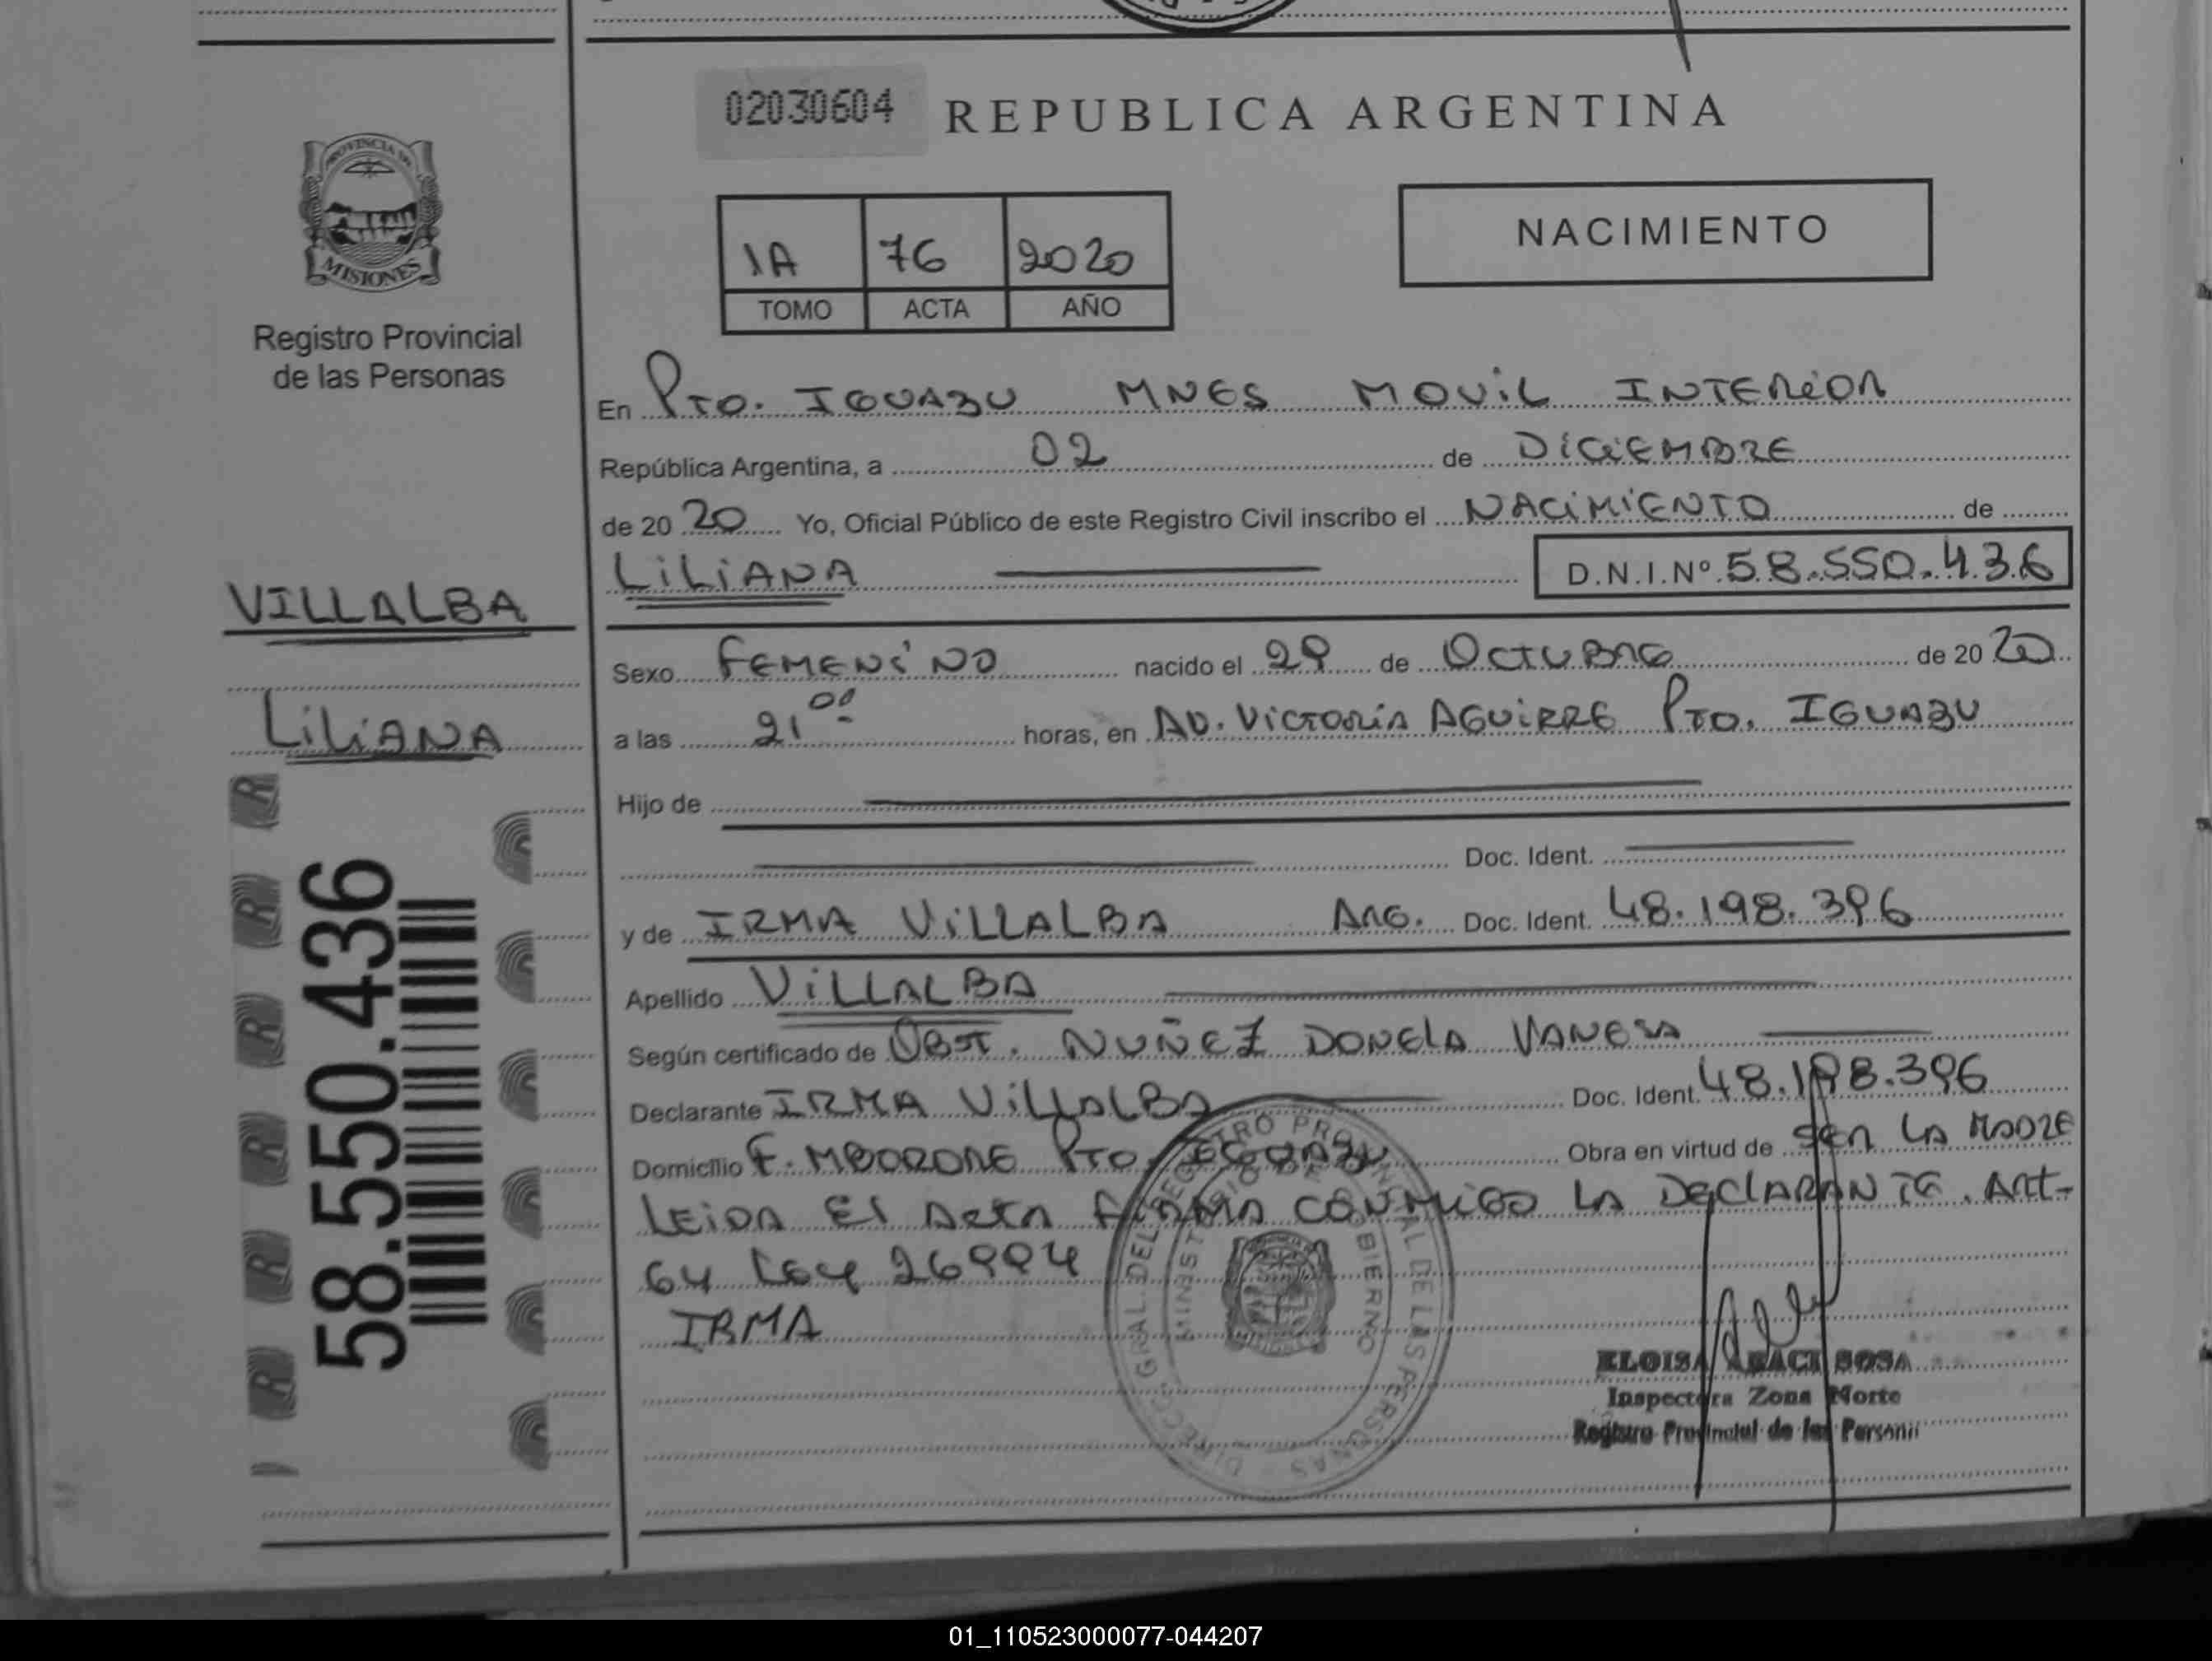 02030604 REPUBLICA ARGENTINA
PROVINCIA DE
MISIONES
Registro Provincial
de las Personas
1A 76 2020
TOMO ACTA AÑO
NACIMIENTO
En PTO. IGUAZU MNES MOVIL INTERIOR
República Argentina, a 02 de DICIEMBRE
de 20 20 Yo, Oficial Público de este Registro Civil inscribo el NACIMIENTO de
LILIANA D.N.I.Nº 58.550.436
VILLALBA
LILIANA
58.550.436
Sexo FEMENINO nacido el 29 de OCTUBRE de 20 20
a las 21 00 horas, en AV. VICTORIA AGUIRRE PTO. IGUAZU
Hijo de
Doc. Ident.
y de IRMA VILLALBA ARG. Doc. Ident. 48.198.396
Apellido VILLALBA
Según certificado de OBST. NUÑEZ VANESA
Declarante IRMA VILLALBA Doc. Ident. 48.198.396
Domicilio F. MBORORE PTO. IGUAZU Obra en virtud de SER LA MADRE
LEIDA EL ACTA FIRMA CONMIGO LA DECLARANTE. ART-
64 Ley 26994
IRMA
DIRECC. GRAL. DEL REGISTRO PROVINCIAL DE LAS PERSONAS
MINISTERIO DE GOBIERNO
MISIONES
ELOISA SOSA
Inspectora Zona Norte
Registro Provincial de las Personas
01_110523000077-044207